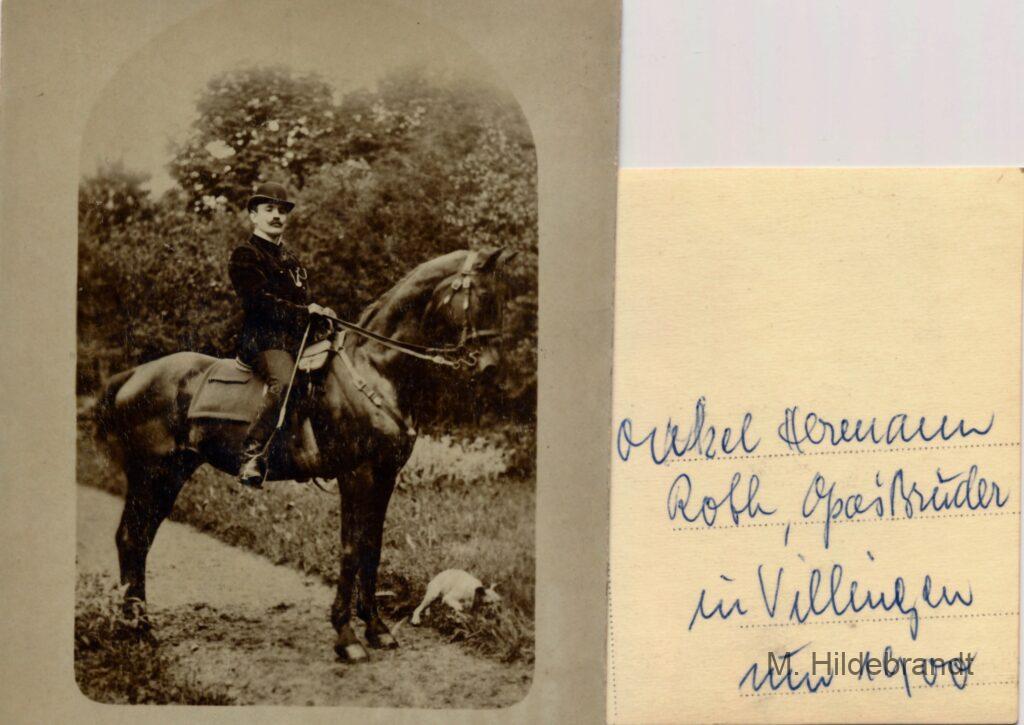 Onkel Hermann
Roth, Opas Bruder
in Villingen
um 1900
M. Hildebrandt